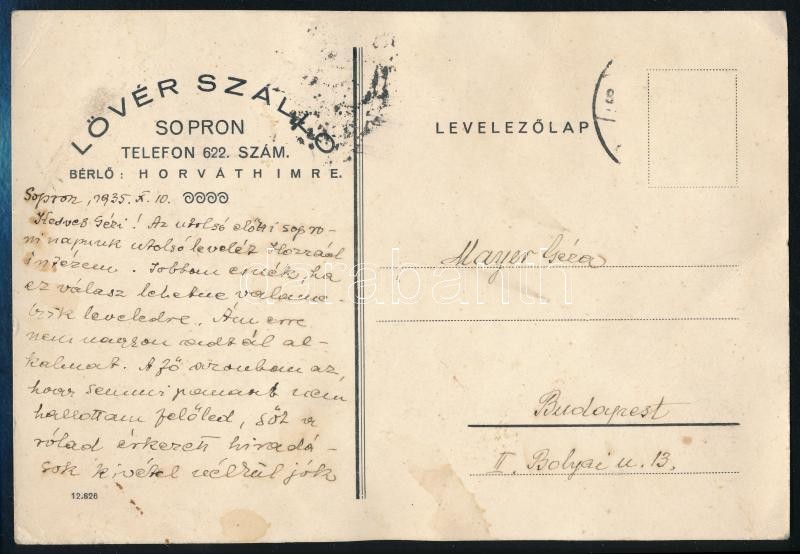 LÖVÉR SZÁLLÓ
SOPRON
TELEFON 622. SZÁM.
BÉRLŐ: HORVÁTH IMRE.
Sopron, 1935. X. 10.
Kedves Gézi! Az utolsó előtti sopro-
ni napnak utolsó levelét Hozzád
intézem. Jobban esnék, ha
ez válasz lehetne valame-
lyik leveledre. Ám erre
nem nagyon adtál al-
kalmat. A fő azonban az,
hogy semmi panaszt nem
hallottam felőled, sőt a
rólad érkezett híradá-
sok kivétel nélkül jók
12.626
LEVELEZŐLAP
Mayer Géza
Budapest
II. Bolyai u. 13.
darabanth